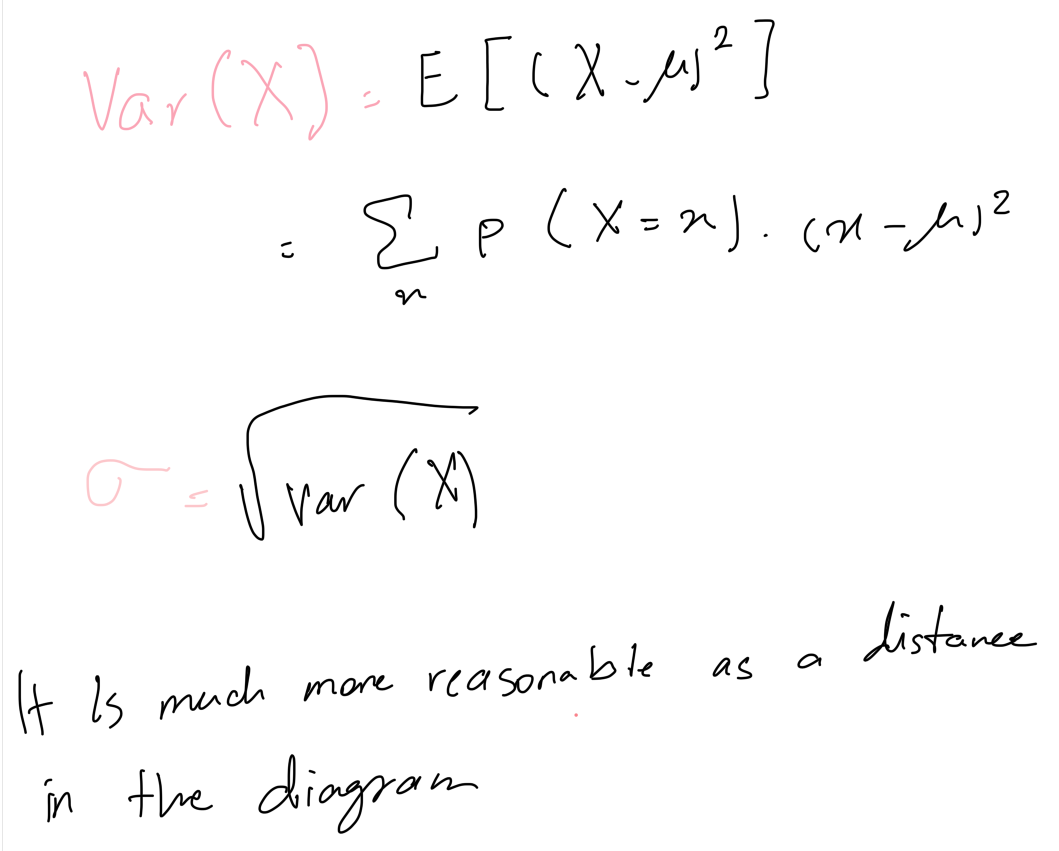 Var(X) = E[(X-μ)²]
= Σ P(X=x). (x-μ)²
x
σ = √var(X)
It Is much more reasonable as a distance
in the diagram